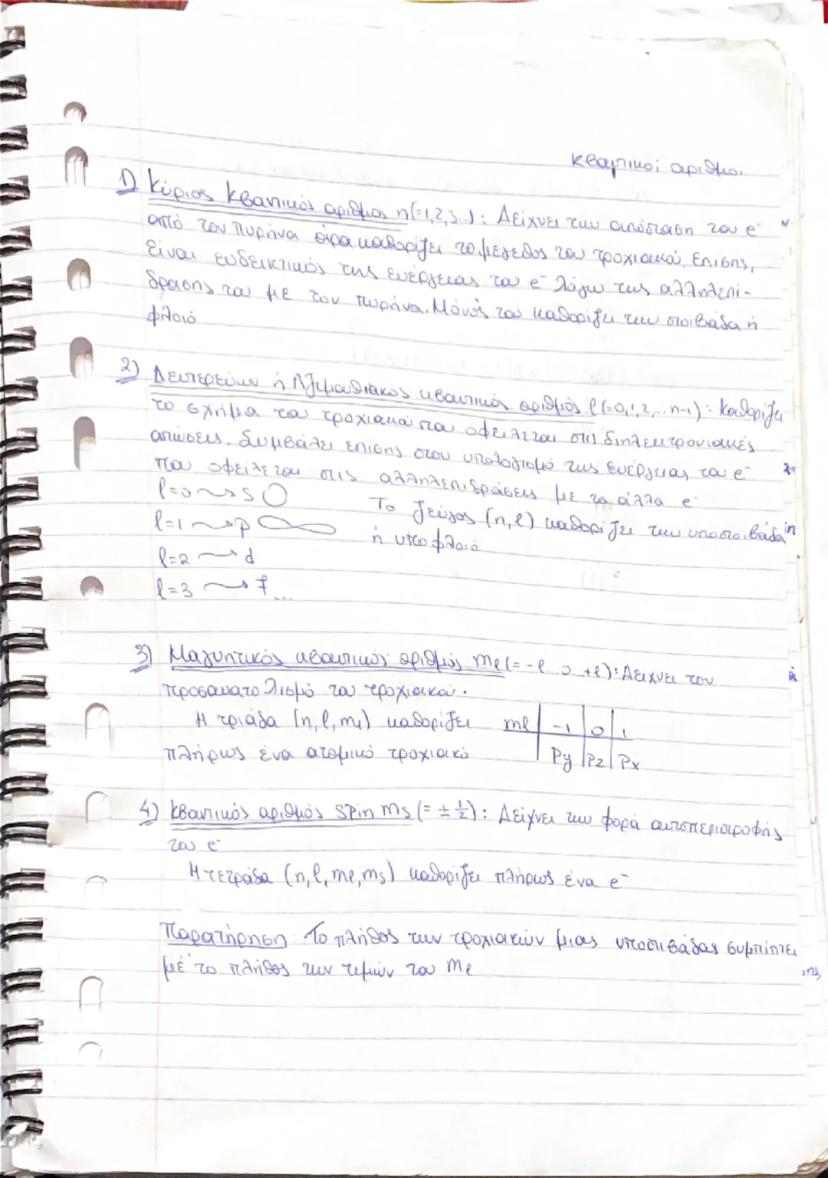 Κβαντικοί αριθμοί
1) Κύριος Κβαντικός αριθμός n(=1,2,3...): Δείχνει την απόσταση του e⁻
από τον πυρήνα άρα καθορίζει το μέγεθος του τροχιακού. Επίσης,
είναι ενδεικτικός της ενέργειας του e⁻ λόγω της αλληλεπί-
δρασης του με τον πυρήνα. Μόνος του καθορίζει την στοιβάδα ή
φλοιό
2) Δευτερεύων ή Αζιμουθιακός κβαντικός αριθμός l(=0,1,2,...n-1): Καθορίζει
το σχήμα του τροχιακού που οφείλεται στις διηλεκτρονιακές
απώσεις. Συμβάλει επίσης στον υπολογισμό της ενέργειας του e⁻
που οφείλεται στις αλληλεπιδράσεις με τα άλλα e⁻
l=0 → s
l=1 → p
l=2 → d
l=3 → f...
Το ζεύγος (n,l) καθορίζει την υποστοιβάδα
ή υποφλοιό
3) Μαγνητικός κβαντικός αριθμός ml(=-l...0...+l): Δείχνει τον
προσανατολισμό του τροχιακού.
Η τριάδα (n,l,ml) καθορίζει
πλήρως ένα ατομικό τροχιακό
ml | -1 | 0 | 1
| Py | Pz | Px
4) Κβαντικός αριθμός spin ms (= ± ½): Δείχνει την φορά αυτοπεριστροφής
του e⁻
Η τετράδα (n,l,ml,ms) καθορίζει πλήρως ένα e⁻
Παρατήρηση Το πλήθος των τροχιακών μιας υποστιβάδας συμπίπτει
με το πλήθος των τιμών του ml